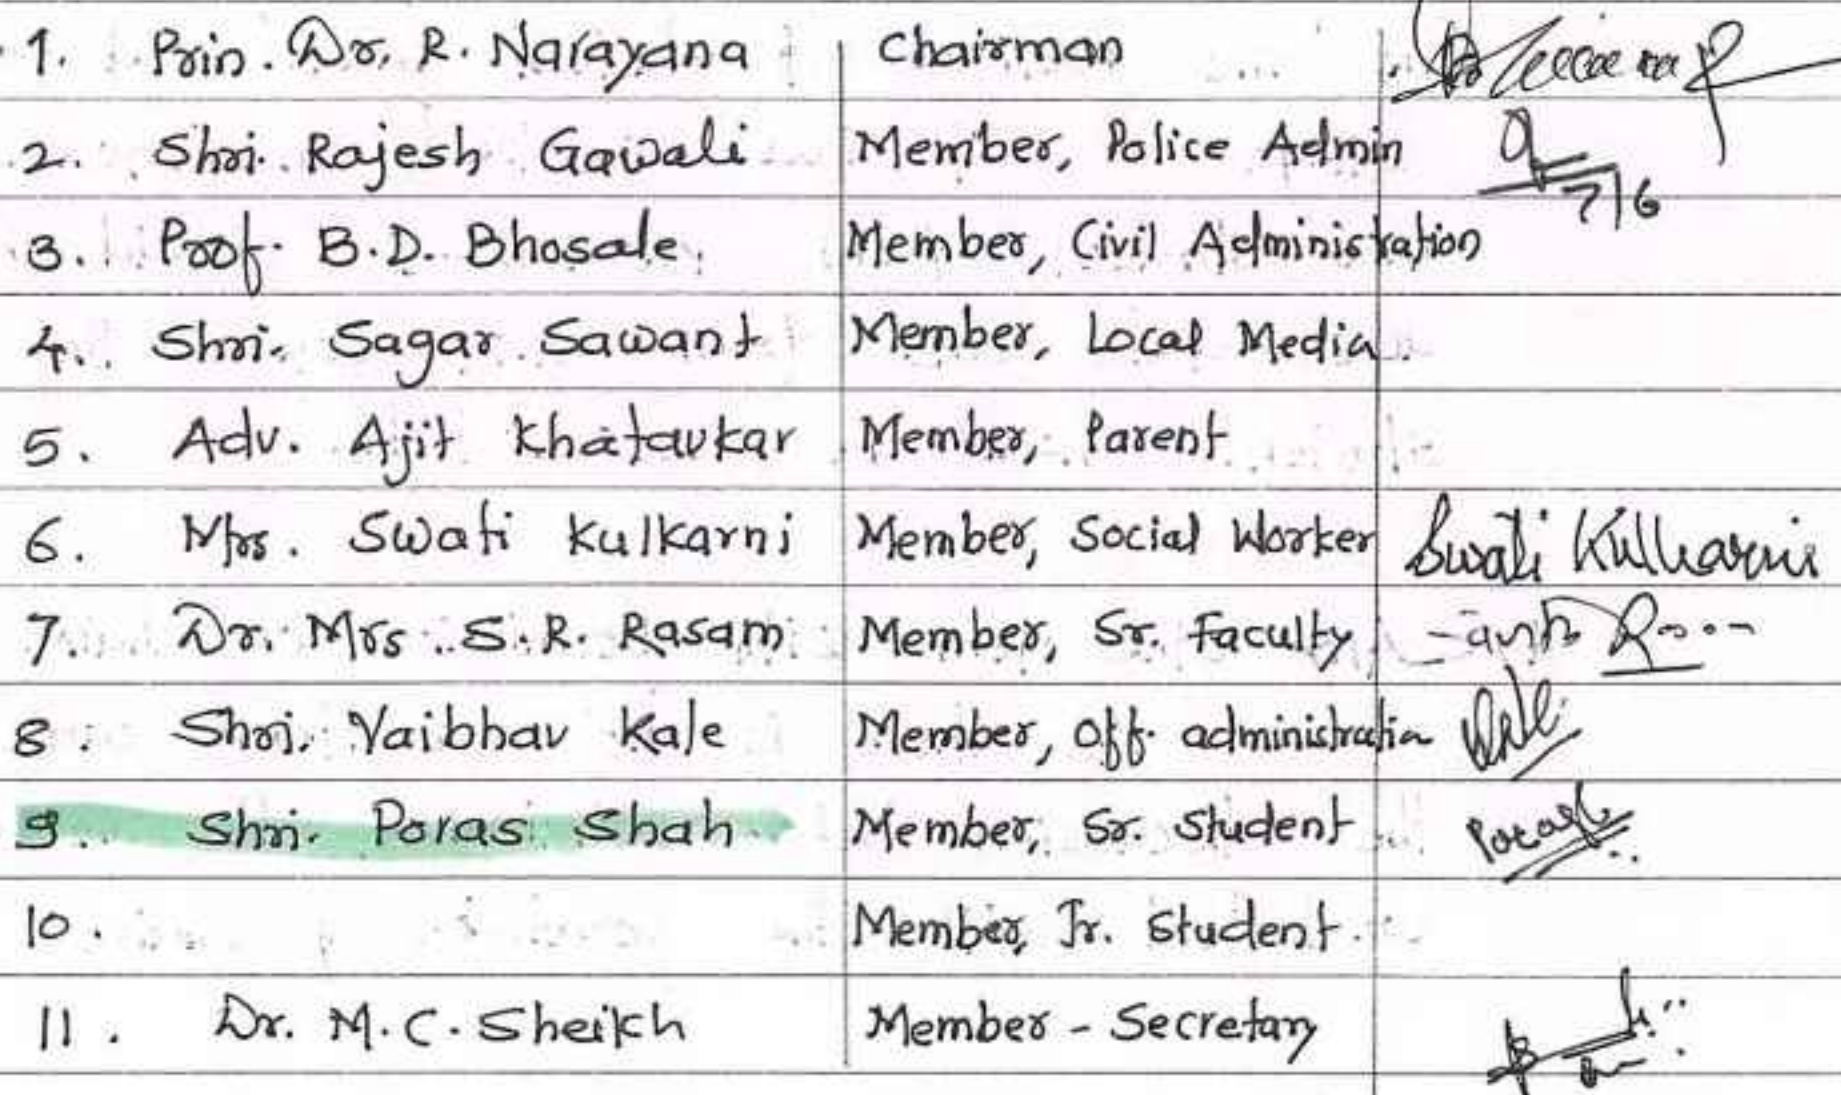 1. Prin. Dr. R. Narayana Chairman
2. Shri. Rajesh Gawali Member, Police Admin 7/6
3. Prof. B.D. Bhosale Member, Civil Administration
4. Shri. Sagar Sawant Member, Local Media
5. Adv. Ajit Khatavkar Member, Parent
6. Mrs. Swati Kulkarni Member, Social Worker Swati Kulkarni
7. Dr. Mrs. S.R. Rasam Member, Sr. Faculty
8. Shri. Vaibhav Kale Member, Off. administration
9. Shri. Poras Shah Member, Sr. Student
10. Member, Jr. Student
11. Dr. M.C. Sheikh Member - Secretary